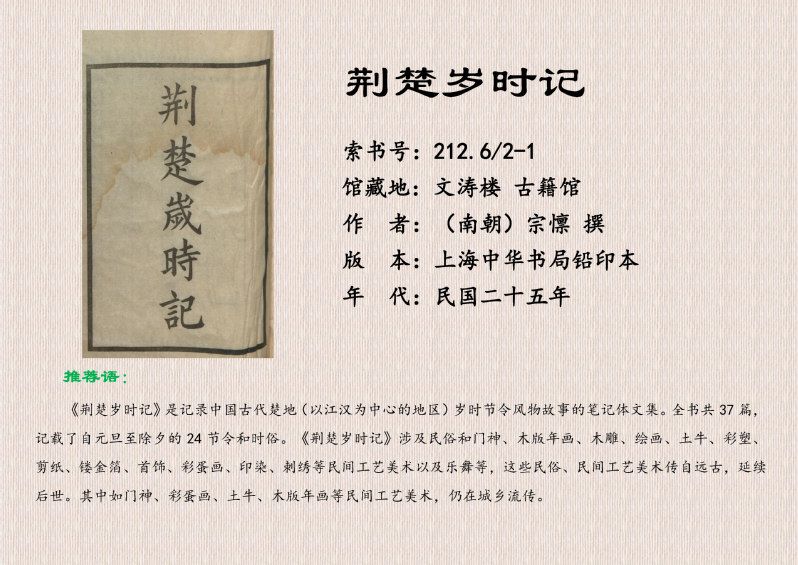 荆楚歲時記
荆楚岁时记
索书号：212.6/2-1
馆藏地：文涛楼 古籍馆
作　者：（南朝）宗懔 撰
版　本：上海中华书局铅印本
年　代：民国二十五年
推荐语：
《荆楚岁时记》是记录中国古代楚地（以江汉为中心的地区）岁时节令风物故事的笔记体文集。全书共 37 篇，
记载了自元旦至除夕的 24 节令和时俗。《荆楚岁时记》涉及民俗和门神、木版年画、木雕、绘画、土牛、彩塑、
剪纸、镂金箔、首饰、彩蛋画、印染、刺绣等民间工艺美术以及乐舞等，这些民俗、民间工艺美术传自远古，延续
后世。其中如门神、彩蛋画、土牛、木版年画等民间工艺美术，仍在城乡流传。